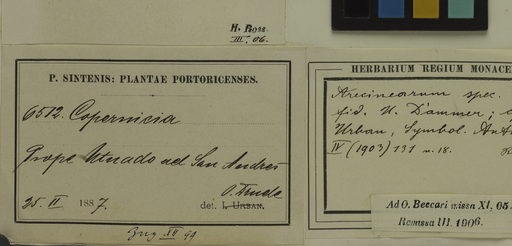 H. Ross.
III. 06.
P. SINTENIS: PLANTAE PORTORICENSES.
6512. Copernicia
Prope Utuado ad San Andres
25. II 1887. det. I. URBAN.
XII 99
HERBARIUM REGIUM MONACE
Arecinearum spec.
fid. U. Dammer;
Urban, Symbol. Ant
IV (1903) 131 n. 18.
Ad O. Beccari missa XI, 05.
Remissa III. 1906.